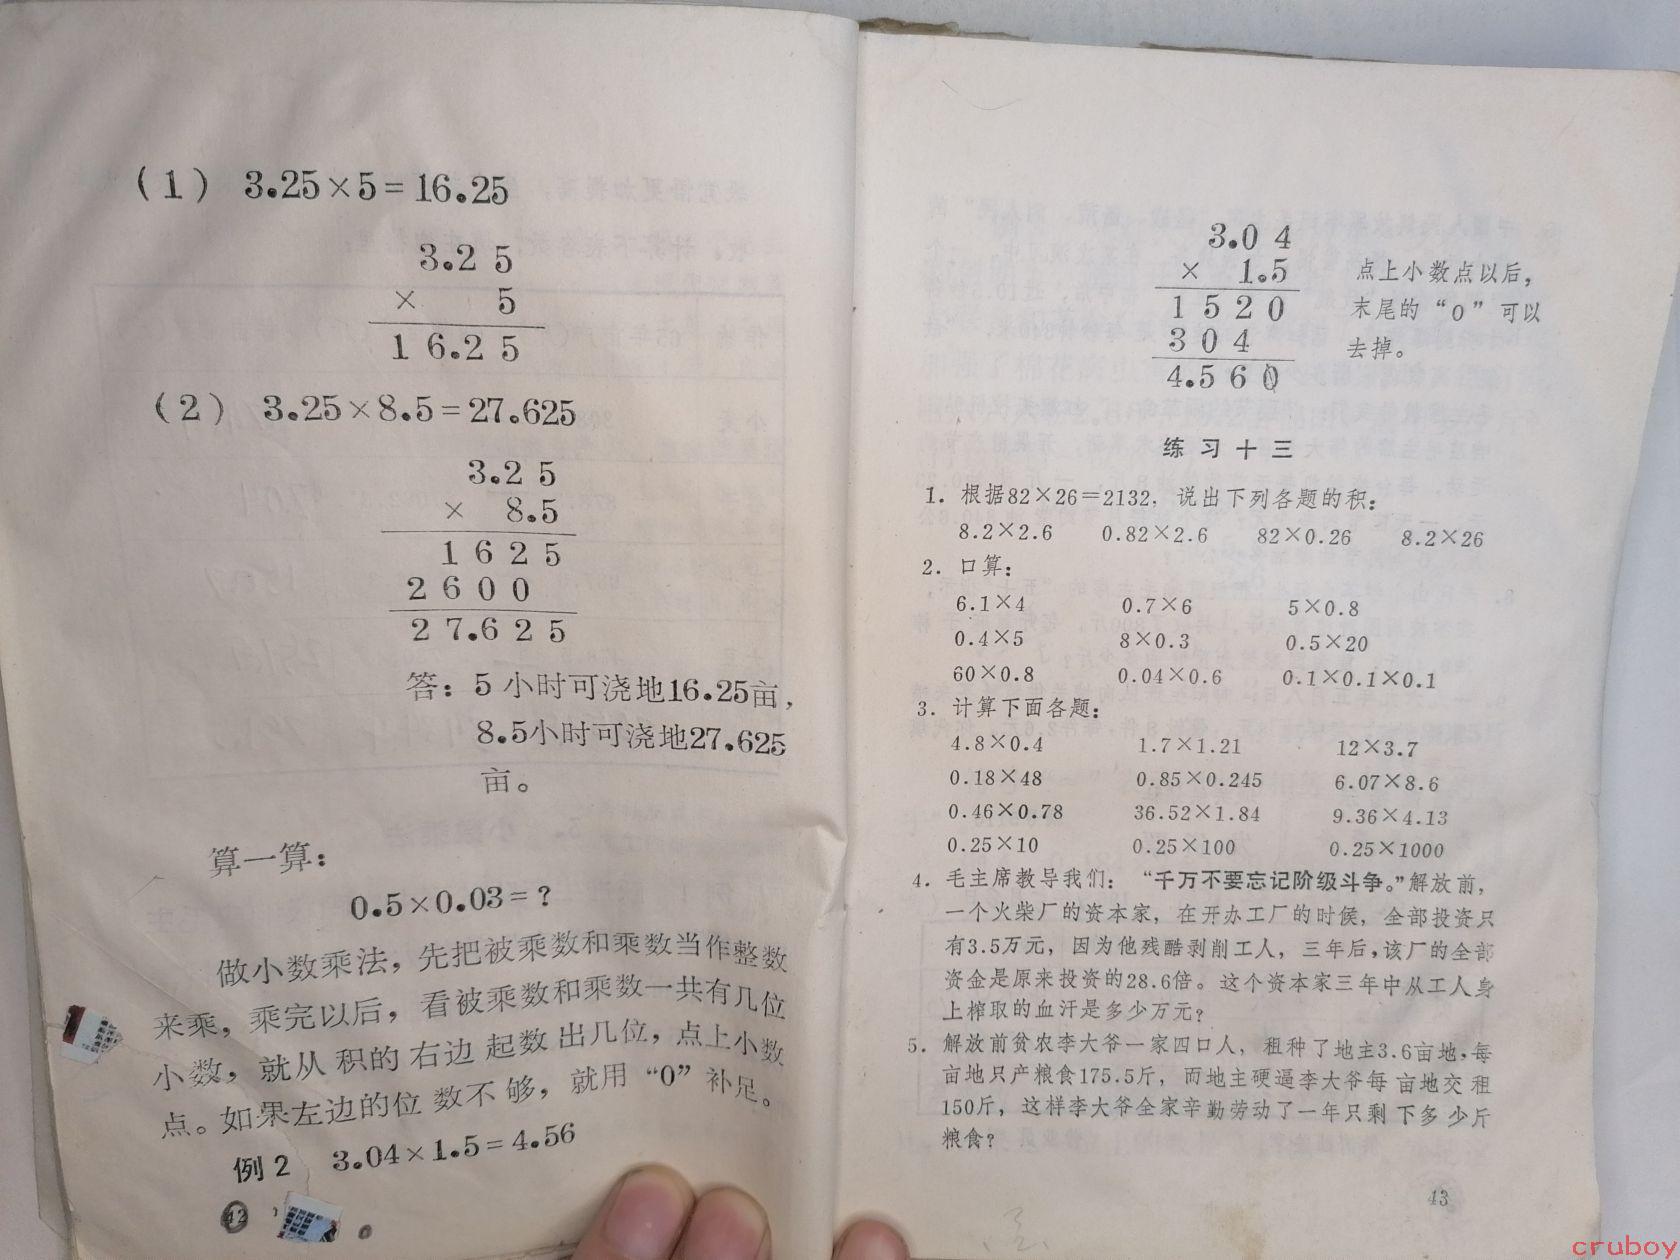 (1) 3.25×5=16.25
3.25
× 5
16.25
(2) 3.25×8.5=27.625
3.25
× 8.5
1625
2600
27.625
答：5小时可浇地16.25亩，
8.5小时可浇地27.625
亩。
算一算：
0.5×0.03=？
做小数乘法，先把被乘数和乘数当作整数
来乘，乘完以后，看被乘数和乘数一共有几位
小数，就从积的右边起数出几位，点上小数
点。如果左边的位数不够，就用“0”补足。
例2 3.04×1.5=4.56
42
3.04
× 1.5
1520
304
4.560
点上小数点以后，
末尾的“0”可以
去掉。
练习十三
1. 根据82×26=2132，说出下列各题的积：
8.2×2.6 0.82×2.6 82×0.26 8.2×26
2. 口算：
6.1×4 0.7×6 5×0.8
0.4×5 8×0.3 0.5×20
60×0.8 0.04×0.6 0.1×0.1×0.1
3. 计算下面各题：
4.8×0.4 1.7×1.21 12×3.7
0.18×48 0.85×0.245 6.07×8.6
0.46×0.78 36.52×1.84 9.36×4.13
0.25×10 0.25×100 0.25×1000
4. 毛主席教导我们：“千万不要忘记阶级斗争。”解放前，
一个火柴厂的资本家，在开办工厂的时候，全部投资只
有3.5万元，因为他残酷剥削工人，三年后，该厂的全部
资金是原来投资的28.6倍。这个资本家三年中从工人身
上榨取的血汗是多少万元？
5. 解放前贫农李大爷一家四口人，租种了地主3.6亩地，每
亩地只产粮食175.5斤，而地主硬逼李大爷每亩地交租
150斤，这样李大爷全家辛勤劳动了一年只剩下多少斤
粮食？
43
cruboy